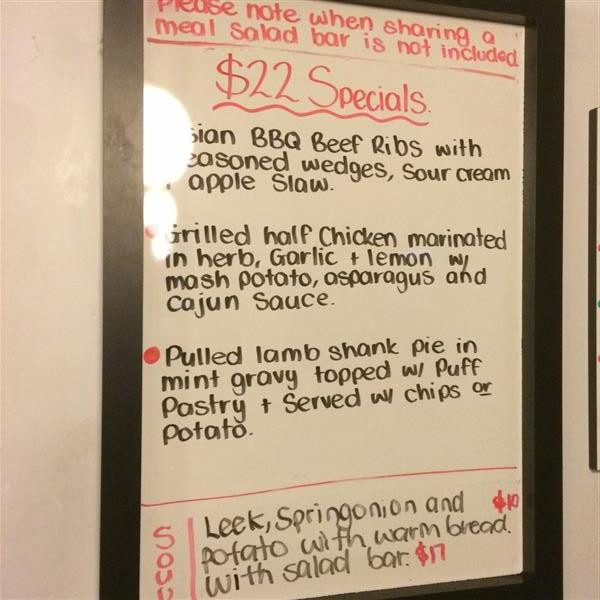 Please note when sharing a
meal salad bar is not included
$22 Specials.
BBQ Beef Ribs with
wedges, sour cream
apple slaw.
Grilled half Chicken marinated
in herb, Garlic + lemon w/
mash potato, asparagus and
Cajun Sauce.
Pulled lamb shank pie in
mint gravy topped w/ Puff
Pastry + Served w/ chips or
Potato.
Soup
Leek, Springonion and $10
potato with warm bread.
with salad bar. $17